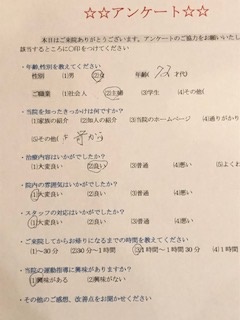 ☆☆アンケート☆☆
本日はご来院ありがとうございます。アンケートのご協力をお願いいたし
該当するところに○印をつけてください
・年齢,性別を教えてください
性別 (1)男 (2)女 年齢( 73 才代)
ご職業 (1)社会人 (2)主婦 (3)学生 (4)その他(
・当院を知ったきっかけは何ですか?
(1)家族の紹介 (2)知人の紹介 (3)当院のホームページ (4)通りがかり
(5)その他( 前から )
・治療内容はいかがでしたか?
(1)大変良い (2)良い (3)普通 (4)悪い (5)よくわ
・院内の雰囲気はいかがでしたか?
(1)大変良い (2)良い (3)普通 (4)悪い
・スタッフの対応はいかがでしたか?
(1)大変良い (2)良い (3)普通 (4)悪い
・ご来院してからお帰りになるまでの時間を教えてください
(1)~30分 (2)30分~1時間 (3)1時間~1時間30分 (4)1時間
・当院の運動指導に興味がありますか?
(1)興味がある (2)興味がない
・その他のご感想、改善点をお聞かせください